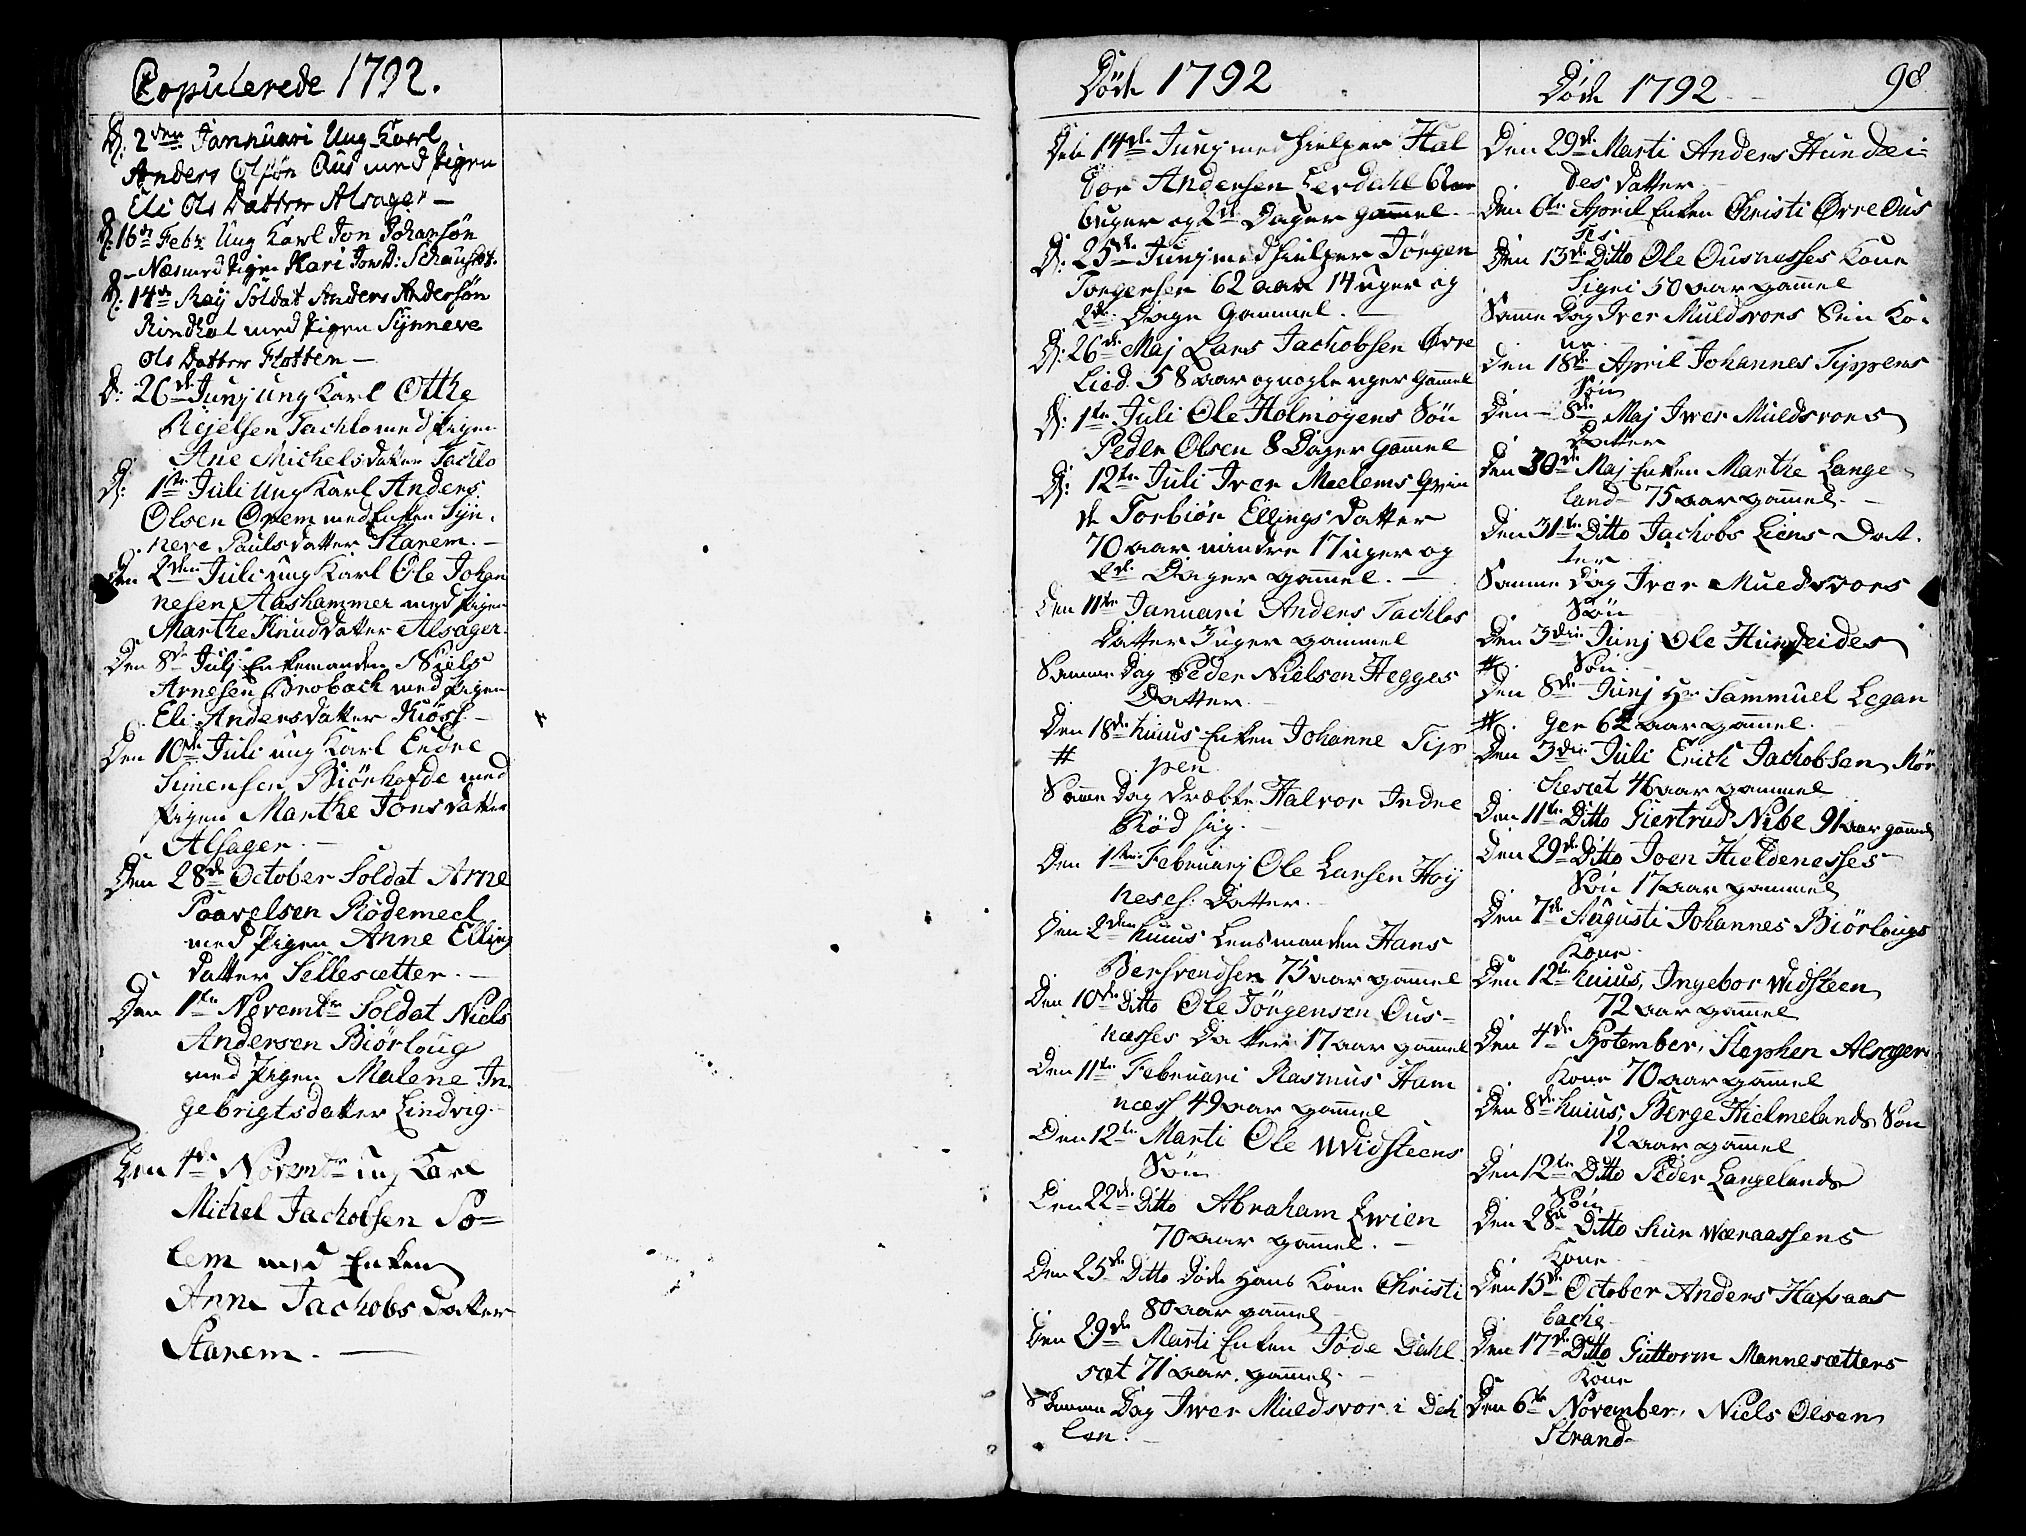 Copulerede 1792.
D: 2den Jannuari Ung Karl
Anders Olsøn Ous med Pigen
Eli Ols Datter Alsager —
D: 16de Febr Ung Karl Jon Johansøn
Næs med Pigen Kari Jons D:
D: 14de Soldat Anders Andersøn
med Pigen Synneve
Ols Datter Flotten —
D: 26de Junj ung Karl Otthe
Kijelsen Tachlo med Pigen
Ane Michelsdatter Tachlo
D: 1te Juli Ung Karl Anders
Olsen Opem med Enken Syn-
neve Paulsdatter Starem. —
Den 2den Juli ung Karl Ole Johan
nesen Aashammer med Pigen
Marthe Knuddatter Alsager.
Den 8de Julj Enkemanden Niels
Arnesen Brobach med Pigen
Eli Andersdatter Kiøss —
Den 10de Juli ung Karl Endre
Simensen Biørhofde med
Pigen Marthe Jonsdatter
Alsager. —
Den 28de October Soldat Arne
Paavelsen Rødemeel
med Pigen Anne Elling
datter Sellesætter. —
Den 1te Novembr Soldat Niels
Andersen Biørloug
med Pigen Malene In-
gebrigtsdatter Lindvig. —
Den 4de Novembr ung Karl
Michel Jachobsen So-
lem med Enken
Anne Jachobsdatter
Starem. —
Døde 1792
Den 14de Junj med hielper Hal
vor Andersen Lerdahl 62 aar
6 uger og 2de Dager gammel. —
D: 25de Junj medhielper Jørgen
Torgersen 62 aar 14 uger og
2de Dage Gammel. —
D: 26de Maj Lars Jachobsen Øvre
Lied. 58 aar og nogle uger Gammel
D: 1te Juli Ole Holmøyens Søn
Peder Olsen 8 Dager gammel
D: 12te Juli Iver Meelems Qvin
de Torbiør Ellingsdatter
70 aar mindre 17 uger og
2de Dager gammel. —
Den 11te Januari Anders Tachlos
Datter 3 uger gammel
Samme Dag Peder Nielsen Hegges
Datter. —
Den 18de huius Enken Johanne Tip
# pen
Samme Dag dræbte Halvor Indre
Rød sig. —
Den 1te Februarj Ole Larsen Høy
neses. Datter. —
Den 2den huius Lensmanden Hans
Bersvendsen 75 aar gammel
Den 10de Ditto Ole Jørgensen Ous-
næsses Datter 17 aar gammel
Den 11te Februari Rasmus Ham
næss 49 aar gammel
Den 12te Marti Ole Widsteens
Søn
Den 22de Ditto Abraham Ewien
70 aar gammel. —
Den 25de Ditto døde Hans Kone Christi
80 aar gammel
Den 29de Marti Enken Jøde Dahl
sæt 71 aar. gammel. —
Samme Dag Iwer Muldsvor i Dah
len. —
Døde 1792
98
Den 29de Marti Anders Hundei-
des datter
Den 6te April Enken Christi Øvre Ous
Den 13de Ditto Ole Ousnesses Kone
Signi 50 aar gammel
Samme Dag Iver Muldsvors Sein Ko-
ne
Den 18de April Johannes Tippens
Søn
Den — 8de Maj Iwer Muldsvors
Datter
Den 30de Maj Enken Marthe Lange
land 75 aar gammel. —
Den 31te Ditto Jachobs Liens Dat-
ter
Samme Dag Iver Muldsvors
Søn
Den 3die Junj Ole Hundeides
# Søn. —
Den 8de Junj Hr Sammuel Legan
# ger 62 aar gammel. —
Den 3die Juli Erich Jachobsen Mør
chesæt 46 aar gammel
Den 11te Ditto Giertrud Nibe 91 aar gammel
Den 29de Ditto Joen Hieldenesses
Søn 17 aar gammel
Den 7de Augusti Johannes Biørlougs
Kone
Den 12te huius, Ingebor Widsteen
72 aar gammel
Den 4de September, Stephen Alsager
Kone 70 aar gammel
Den 8de huius, Berge Hielmelands Søn
12 aar gammel
Den 12te Ditto Peder Langelands
Søn
Den 28de Ditto Siur Wæraassens
Kone
Den 15de October Anders Hafsaas
bache
Den 17de Ditto Guttorm Mannesætters
Kone
Den 6te November, Niels Olsen
Strand